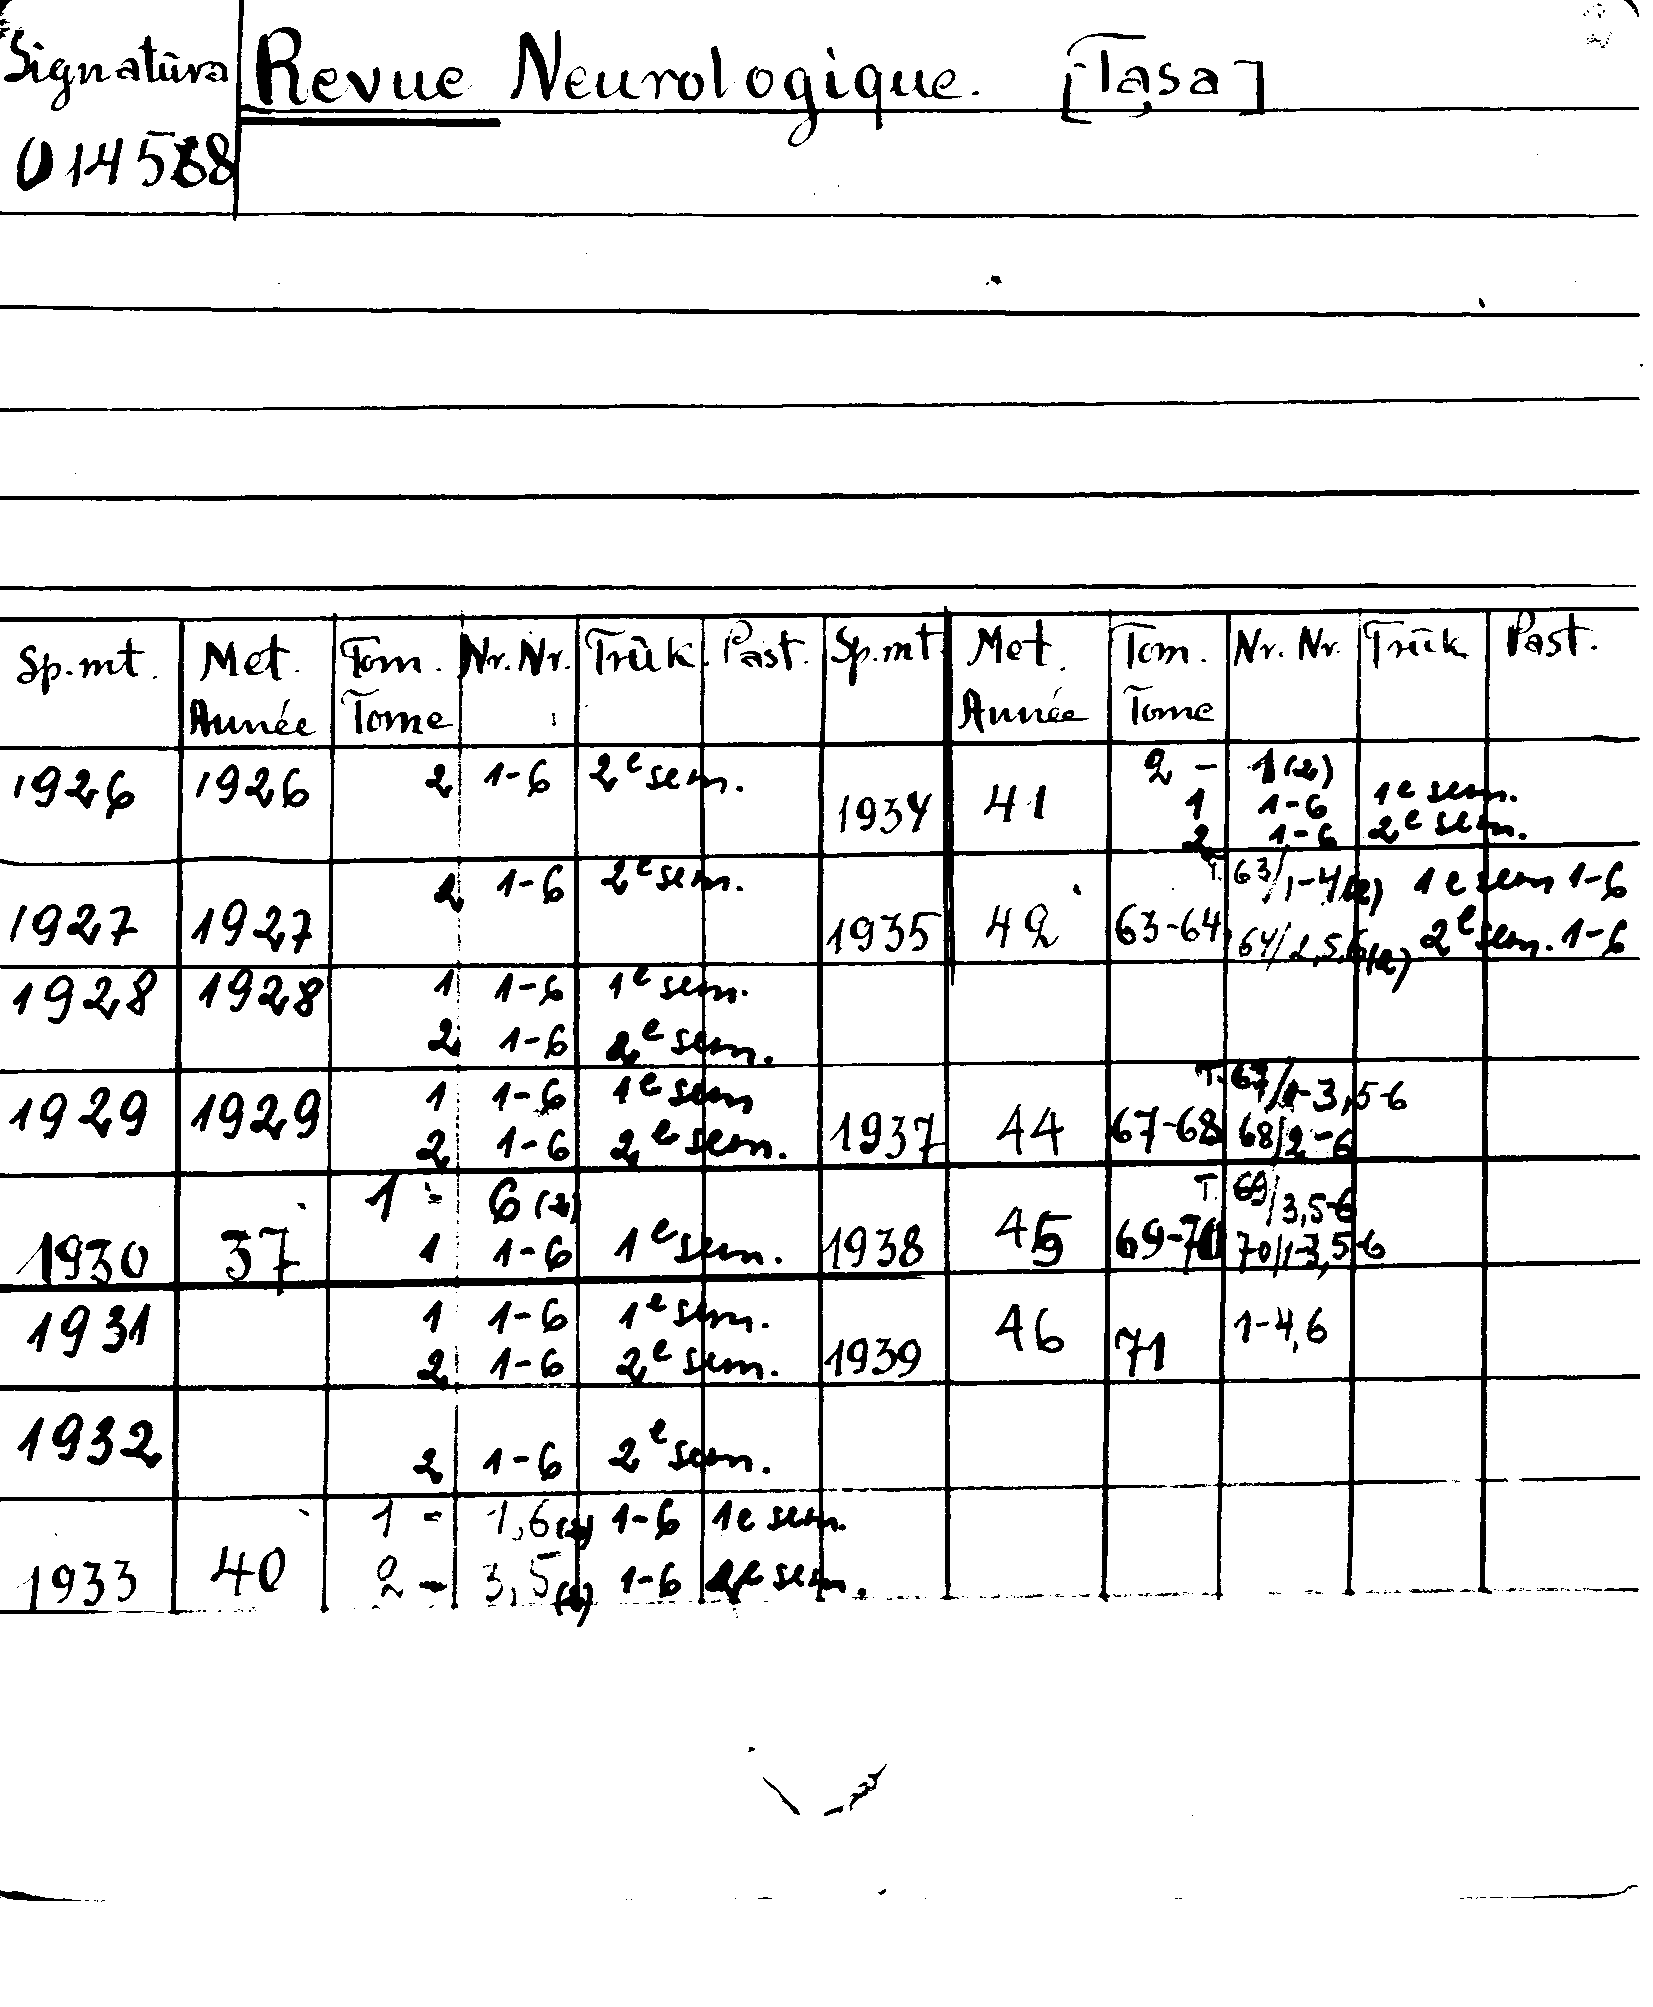 Signatūra Revue Neurologique. [Taşa]
014588
Sp.mt. Met. Tom. Nr. Nr. Trūk. Past. Sp.mt. Met. Tom. Nr. Nr. Trūk. Past.
Année Tome Année Tome
1926 1926 2 1-6 2e sem.
1927 1927 2 1-6 2e sem.
1928 1928 1 1-6 1e sem.
2 1-6 2e sem.
1929 1929 1 1-6 1e sem
2 1-6 2e sem.
1930 37 1 - 6(2)
1 1-6 1e sem.
1931 1 1-6 1e sem.
2 1-6 2e sem.
1932 2 1-6 2e sem.
1933 40 1 - 1,6(2) 1-6 1e sem.
2 - 3,5(2) 1-6 2e sem.
1934 41 2 - 1(2)
1 1-6 1e sem.
2 1-6 2e sem.
1935 42 63-64 T. 63/1-4(2) 1e sem 1-6
64/2,5,6(2) 2e sem. 1-6
1937 44 67-68 T. 67/1-3,5-6
68/2-6
1938 45 69-70 T. 69/3,5-6
70/1-3,5-6
1939 46 71 1-4,6